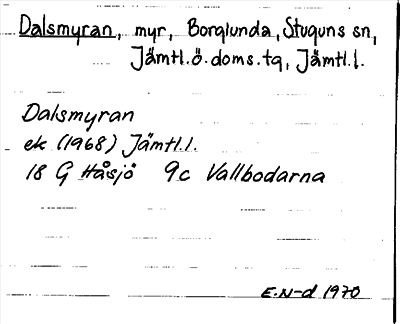 Dalsmyran, myr, Borglunda, Stuguns sn,
Jämtl.ö.doms.tg, Jämtl.l.
Dalsmyran
ek (1968) Jämtl.l.
18 G Håsjö 9c Vallbodarna
E.N-d 1970